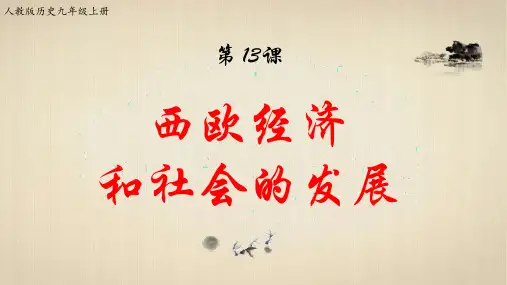 人教版历史九年级上册
第13课
西欧经济
和社会的发展